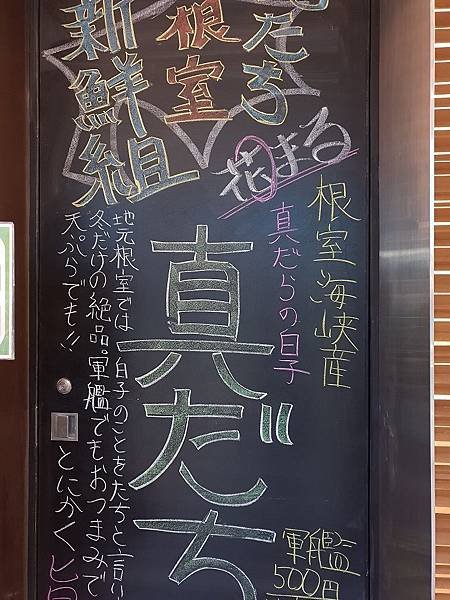 たち
根室
新鮮組
花まる
根室海峡産
真だらの白子
真だち
地元根室では白子のことをたちと言い
冬だけの絶品。軍艦でもおつまみで
天ぷらでも!!
とにかく旨
軍艦
500円